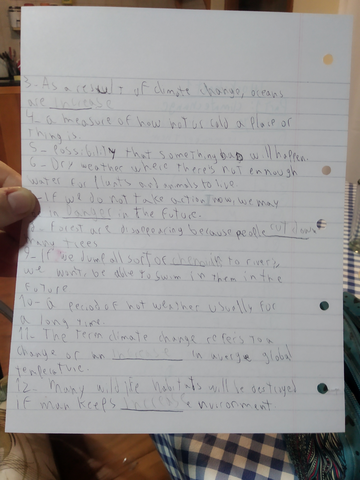 3- As a result of climate change, oceans
are increase
4- a measure of how hot us cold a place or
thing is
5- Possibility that something bad will happen.
6- Dry weather where there's not ennough
water for plants and animals to live
-If we do not take action now, we may
in danger in the future.
- Forest are disappearing because people cut down
many trees
- If we dume all surt of to rivers
we wont, be able to swim in them in the
future
10- a period of hot weather usually for
a long time.
11- The term climate change refers to a
change or an increase in averge global
temperature.
12- Many wild life habitats will be destroyed
if man keeps environment